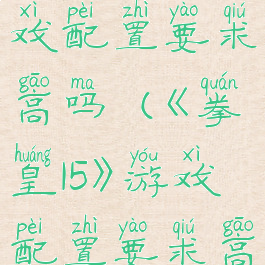 xì pèi zhì yào qiú
戏配置要求
gāo ma quán
高吗(《拳
huáng yóu xì
皇15》游戏
pèi zhì yào qiú gāo
配置要求高